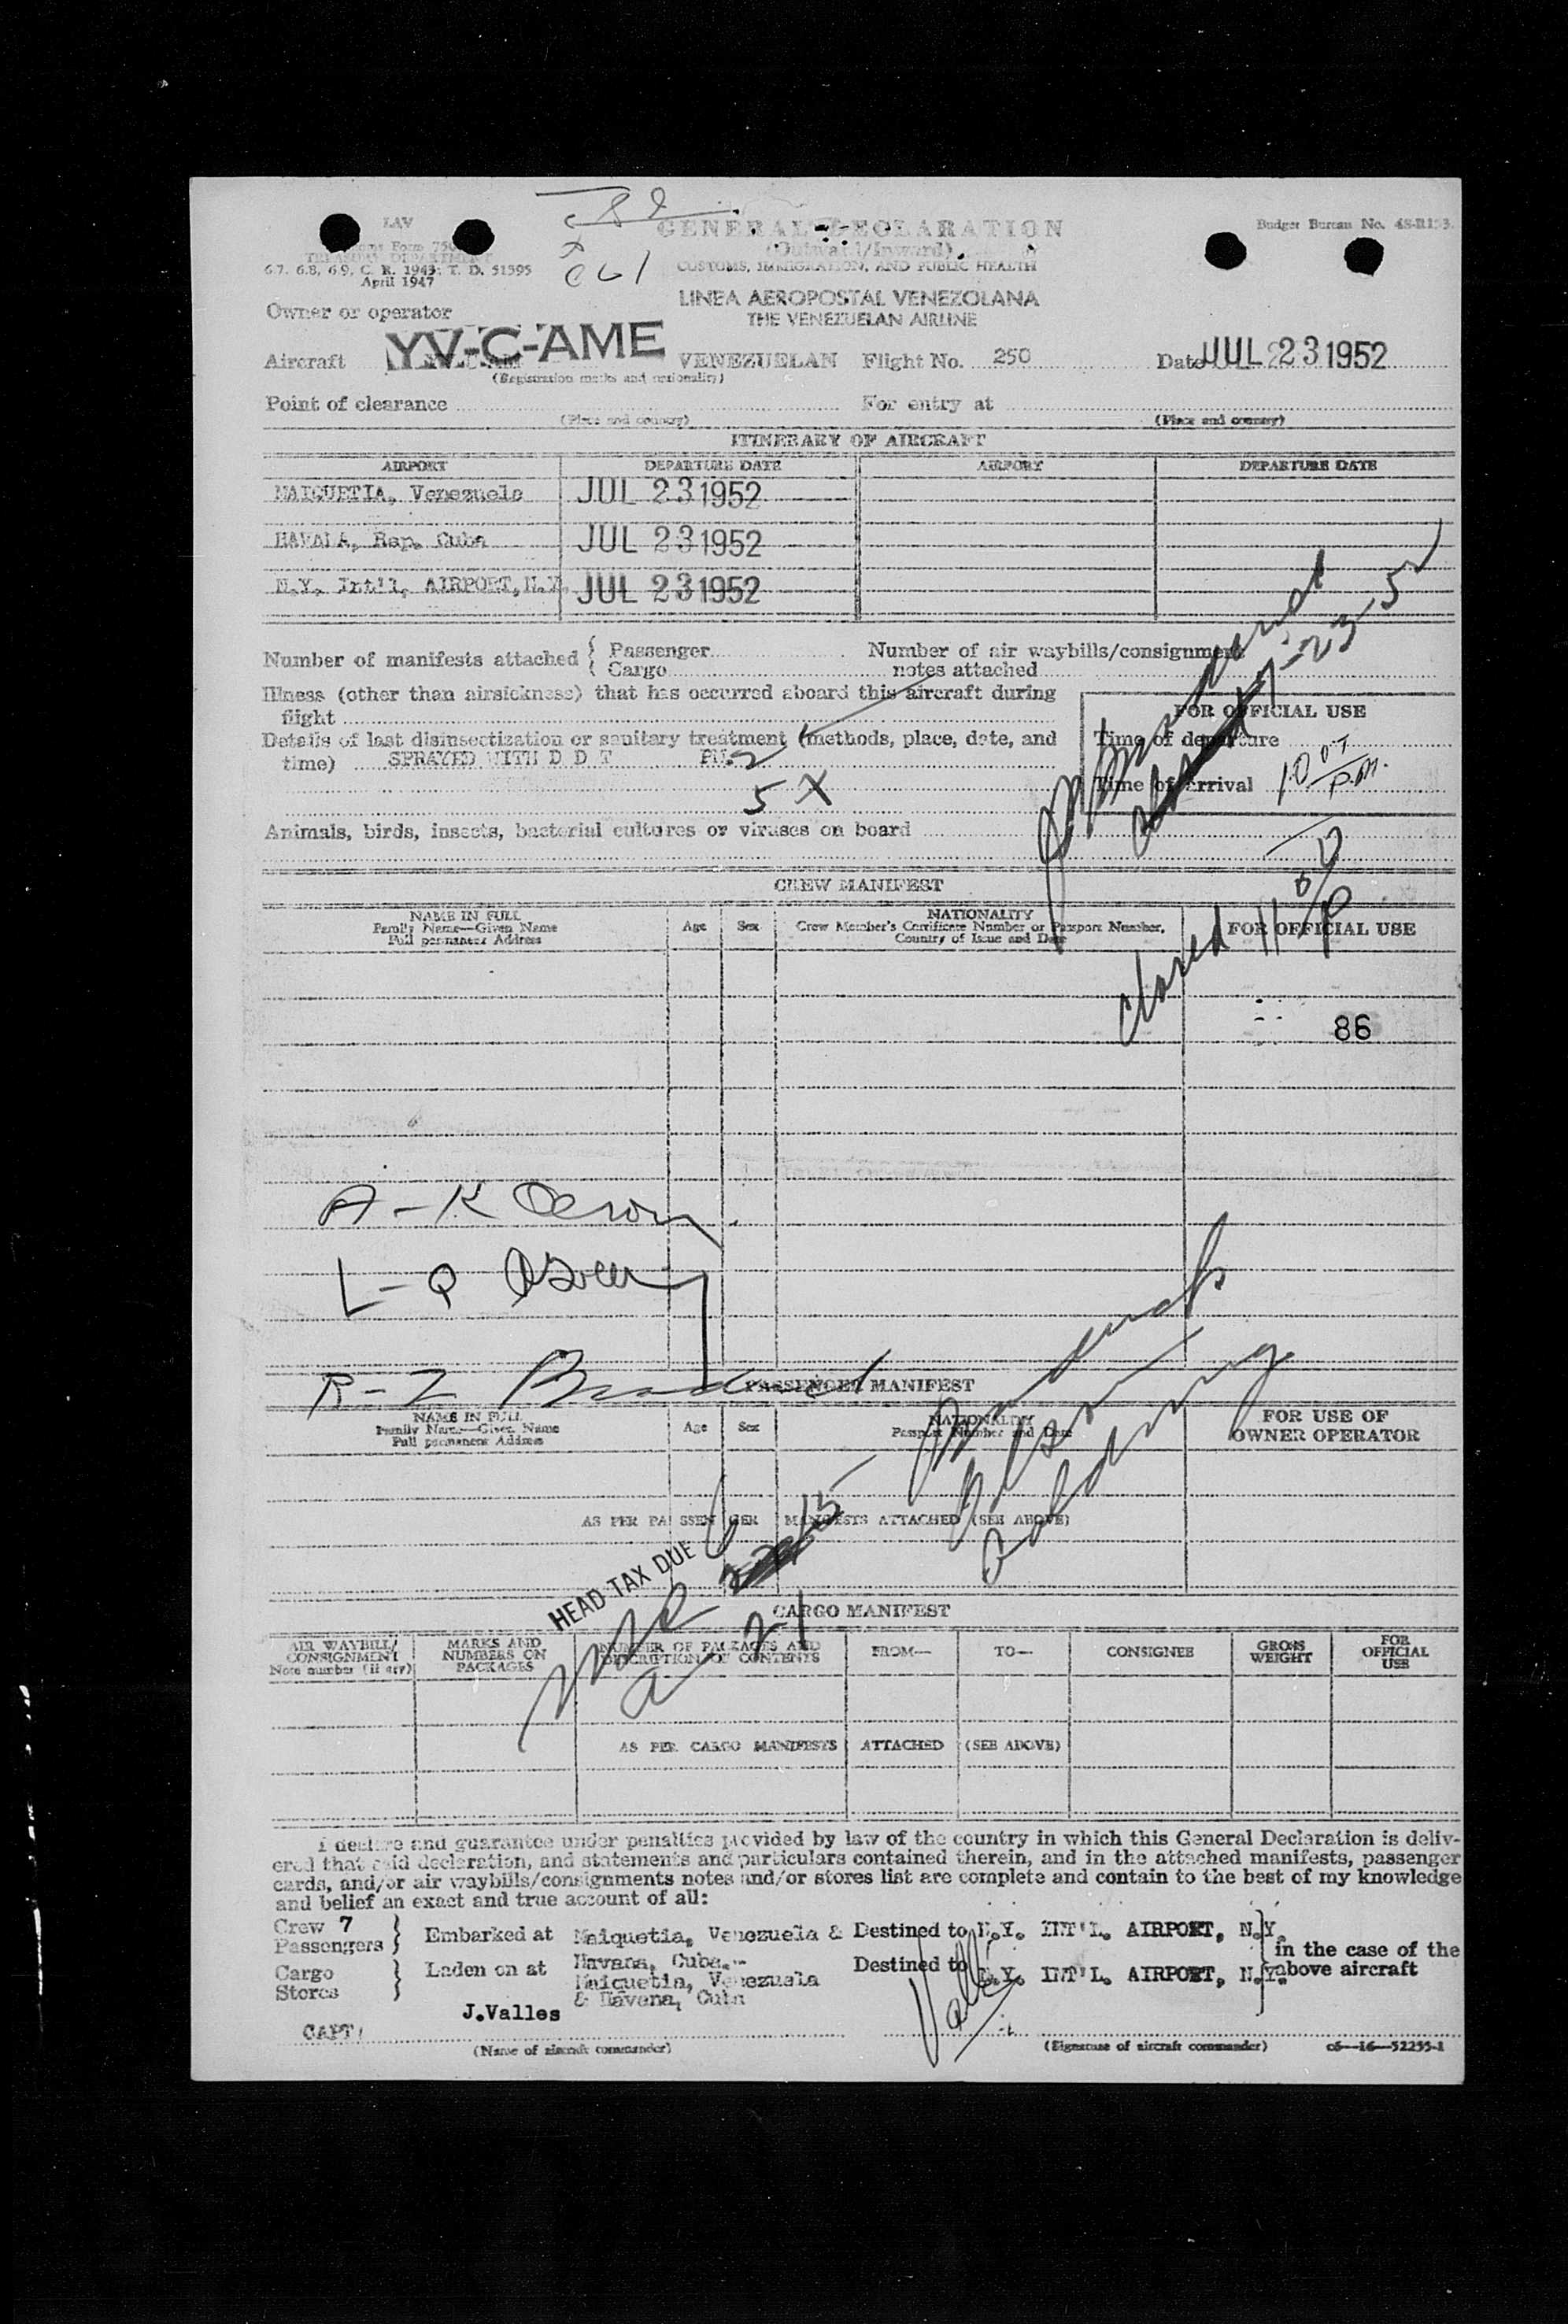 LAV
Customs Form 750
TREASURY DEPARTMENT
6.7, 6.8, 6.9, C. R. 1943; T. D. 51595
April 1947
GENERAL DECLARATION
(Outward/Inward)
CUSTOMS, IMMIGRATION, AND PUBLIC HEALTH
Budget Bureau No. 48-R153.
LINEA AEROPOSTAL VENEZOLANA
THE VENEZUELAN AIRLINE
Owner or operator
Aircraft YV-C-AME VENEZUELAN Flight No. 250 Date JUL 23 1952
(Registration marks and nationality)
Point of clearance For entry at
(Place and country) (Place and country)
ITINERARY OF AIRCRAFT
AIRPORT DEPARTURE DATE AIRPORT DEPARTURE DATE
MAIQUETIA, Venezuela JUL 23 1952
HAVANA, Rep. Cuba JUL 23 1952
N.Y. Int'l, AIRPORT, N.Y. JUL 23 1952
Number of manifests attached { Passenger Number of air waybills/consignment
{ Cargo notes attached
7-23-52
Illness (other than airsickness) that has occurred aboard this aircraft during
flight
FOR OFFICIAL USE
Details of last disinsectization or sanitary treatment (methods, place, date, and
time) SPRAYED WITH D D T
Time of departure
5 X
Time of arrival 10 P.M.
Animals, birds, insects, bacterial cultures or viruses on board
CREW MANIFEST
NAME IN FULL
Family Name—Given Name
Full permanent Address
Age Sex
NATIONALITY
Crew Member's Certificate Number or Passport Number,
Country of Issue and Date
FOR OFFICIAL USE
Closed 11 P
86
A - K
L - Q
R - Z
PASSENGER MANIFEST
NAME IN FULL
Family Name—Given Name
Full permanent Address
Age Sex
NATIONALITY
Passport Number and Date
FOR USE OF
OWNER OPERATOR
AS PER PASSENGER MANIFESTS ATTACHED (SEE ABOVE)
HEAD TAX DUE 6
15
21
CARGO MANIFEST
AIR WAYBILL/
CONSIGNMENT
Note number (if any)
MARKS AND
NUMBERS ON
PACKAGES
NUMBER OF PACKAGES AND
DESCRIPTION OF CONTENTS
FROM—
TO—
CONSIGNEE
GROSS
WEIGHT
FOR
OFFICIAL
USE
AS PER CARGO MANIFESTS ATTACHED (SEE ABOVE)
I declare and guarantee under penalties provided by law of the country in which this General Declaration is deliv-
ered that said declaration, and statements and particulars contained therein, and in the attached manifests, passenger
cards, and/or air waybills/consignments notes and/or stores list are complete and contain to the best of my knowledge
and belief an exact and true account of all:
Crew 7 } Embarked at Maiquetia, Venezuela & Destined to N.Y. INT'L. AIRPORT, N.Y.
Passengers Havana, Cuba.-
in the case of the
above aircraft
Cargo } Laden on at Maiquetia, Venezuela Destined to N.Y. INT'L. AIRPORT, N.Y.
Stores & Havana, Cuba
J.Valles
CAPT:
Valles
(Name of aircraft commander) (Signature of aircraft commander) c6—16—52255-1